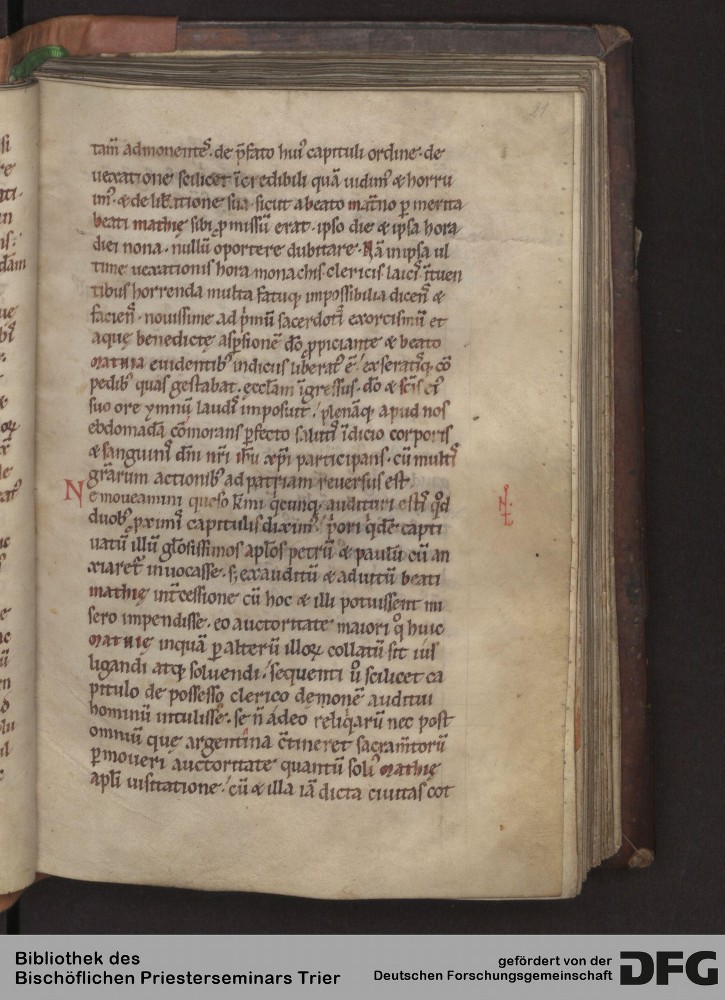 21
tam̄ admonentẹ̄. de p̄fato huiꝰ capituli ordine. de
uexatione scilicet īcredibili quā uidimꝰ & horru
imꝰ. & de lib̄atione sua sicut a beato mat̄no ꝑ merita
beati mathię sibi ꝓmissū erat. ipso die & ipsa hora
diei nona. nullū oportere dubitare. Nā in ipsa ul
time uexationis hora monachis. clericis laicisꝗ ītuen
tibus horrenda multa fatuꝗ impossibilia dicenſ &
facienſ. nouissime ad p̄mū sacerdotis exorcismū et
aque benedictę aspsionē dō ꝓpiciante & beato
mathia euidentibꝰ indiciis liberatꝰ ē. exseratisꝗ cō
pedibꝰ quas gestabat. ęccl̄am īgressus. dō & sc̄is eiꝰ
suo ore ymnū laudis imposuit. plenāꝗ apud nos
ebdomadā cōmorans ꝑfecto salutis īdicio corporis
& sanguinis dn̄i nr̄i ih̄u xp̄i participans. cū multis
gr̄arum actionibꝰ ad patriam reuersus est.
Ne moueamini queso kr̄mi q̄cunꝗ audituri estis qd̄
duobꝰ ꝓximis capitulis diximꝰ. p̄ori qd̄ē capti
uatū illū gl̄osissimos apl̄os petrū & paulū cū an
xiaretꝰ inuocasse. s; exauditū & adiutū beati
mathię int̄cessione cū hoc & illi potuissent mi
sero impendisse. eo auctoritate maiori q̄ huic
mathię inquā ꝑ alterū illoꝝ collatū sit ius
ligandi atꝗ soluendi. sequenti ū scilicet ca
pitulo de possesso clerico demonē auditui
hominū intulisse. se n̄ adeo reliq̄arū nec post
omniū que argentina c̄tineret sacram̄torū
ꝑmoueri auctoritate quantū soliꝰ mathię
apl̄i uisitatione. cū & illa iā dicta ciuitas cot
Bibliothek des
Bischöflichen Priesterseminars Trier
gefördert von der
Deutschen Forschungsgemeinschaft
DFG